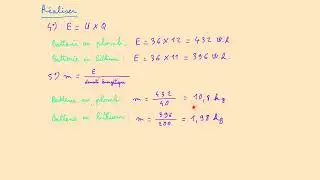 Réaliser
4°) E = U × Q
Batterie au plomb. E = 36 × 12 = 432 W.h.
Batterie au lithium : E = 36 × 11 = 396 W.h.
5°) m = E / densité énergétique
Batterie au plomb m = 432 / 40 = 10,8 kg
Batterie au lithium m = 396 / 200 = 1,98 kg